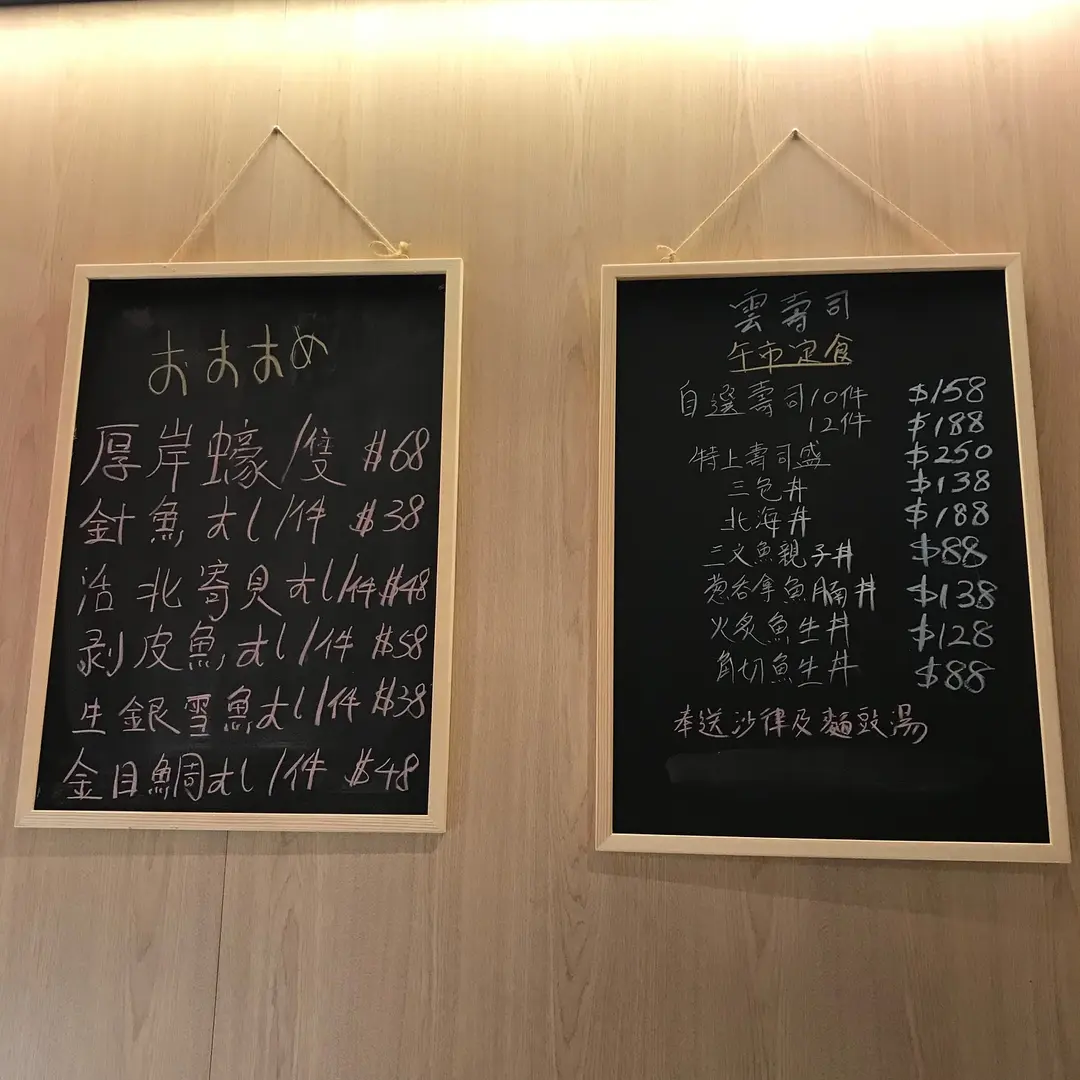 おすすめ
厚岸蠔/隻 $68
針魚すし/件 $38
活北寄貝すし/件 $48
剥皮魚すし/件 $58
生銀雪魚すし/件 $38
金目鯛すし/件 $48
雲壽司
午市定食
自選壽司10件 $158
12件 $188
特上壽司盛 $250
三色丼 $138
北海丼 $188
三文魚親子丼 $88
葱吞拿魚腩丼 $138
火炙魚生丼 $128
角切魚生丼 $88
奉送沙律及麵豉湯